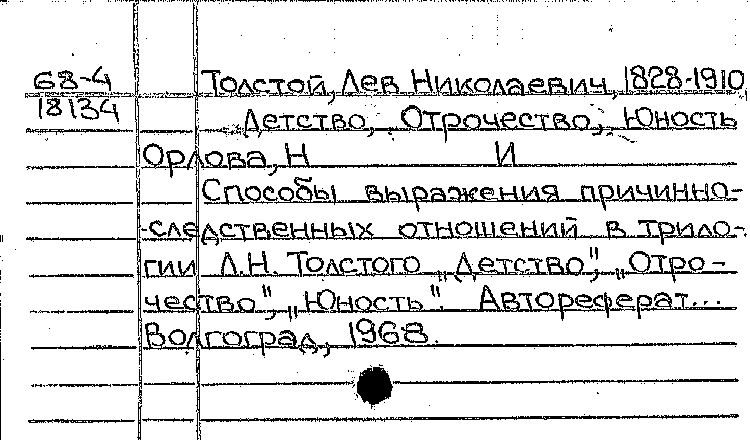 68-4 Толстой, Лев Николаевич, 1828-1910
18134 Детство, Отрочество, Юность
Орлова, Н И
Способы выражения причинно-
-следственных отношений в трило-
гии Л.Н. Толстого „Детство", „Отро-
чество", „Юность". Автореферат...
Волгоград, 1968.